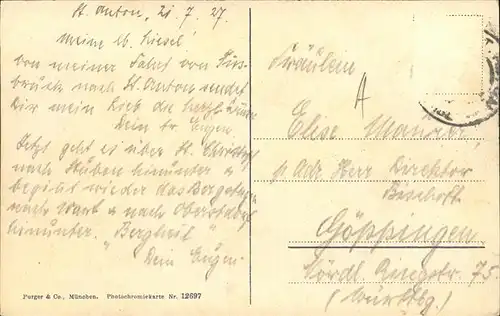 St. Anton, 21.7.27.
Meine lb. Liesel!
Von meiner Fahrt von Inns-
bruck nach St. Anton sendet
Dir mein Lieb die herzl. Grüße
Dein tr. Eugen.
Jetzt geht es über St. Christof
nach Stuben hinunter u.
beginnt wieder das Bergsteigen
nach Warth u. nach Oberstdorf
hinunter. "Bergheil"
Dein Eugen.
Purger & Co., München. Photochromiekarte Nr. 12697
Fräulein
Else
p. Adr. Herr Direktor
Bischoff
Göppingen
Nördl. Ringstr. 75.
(Württbg.)